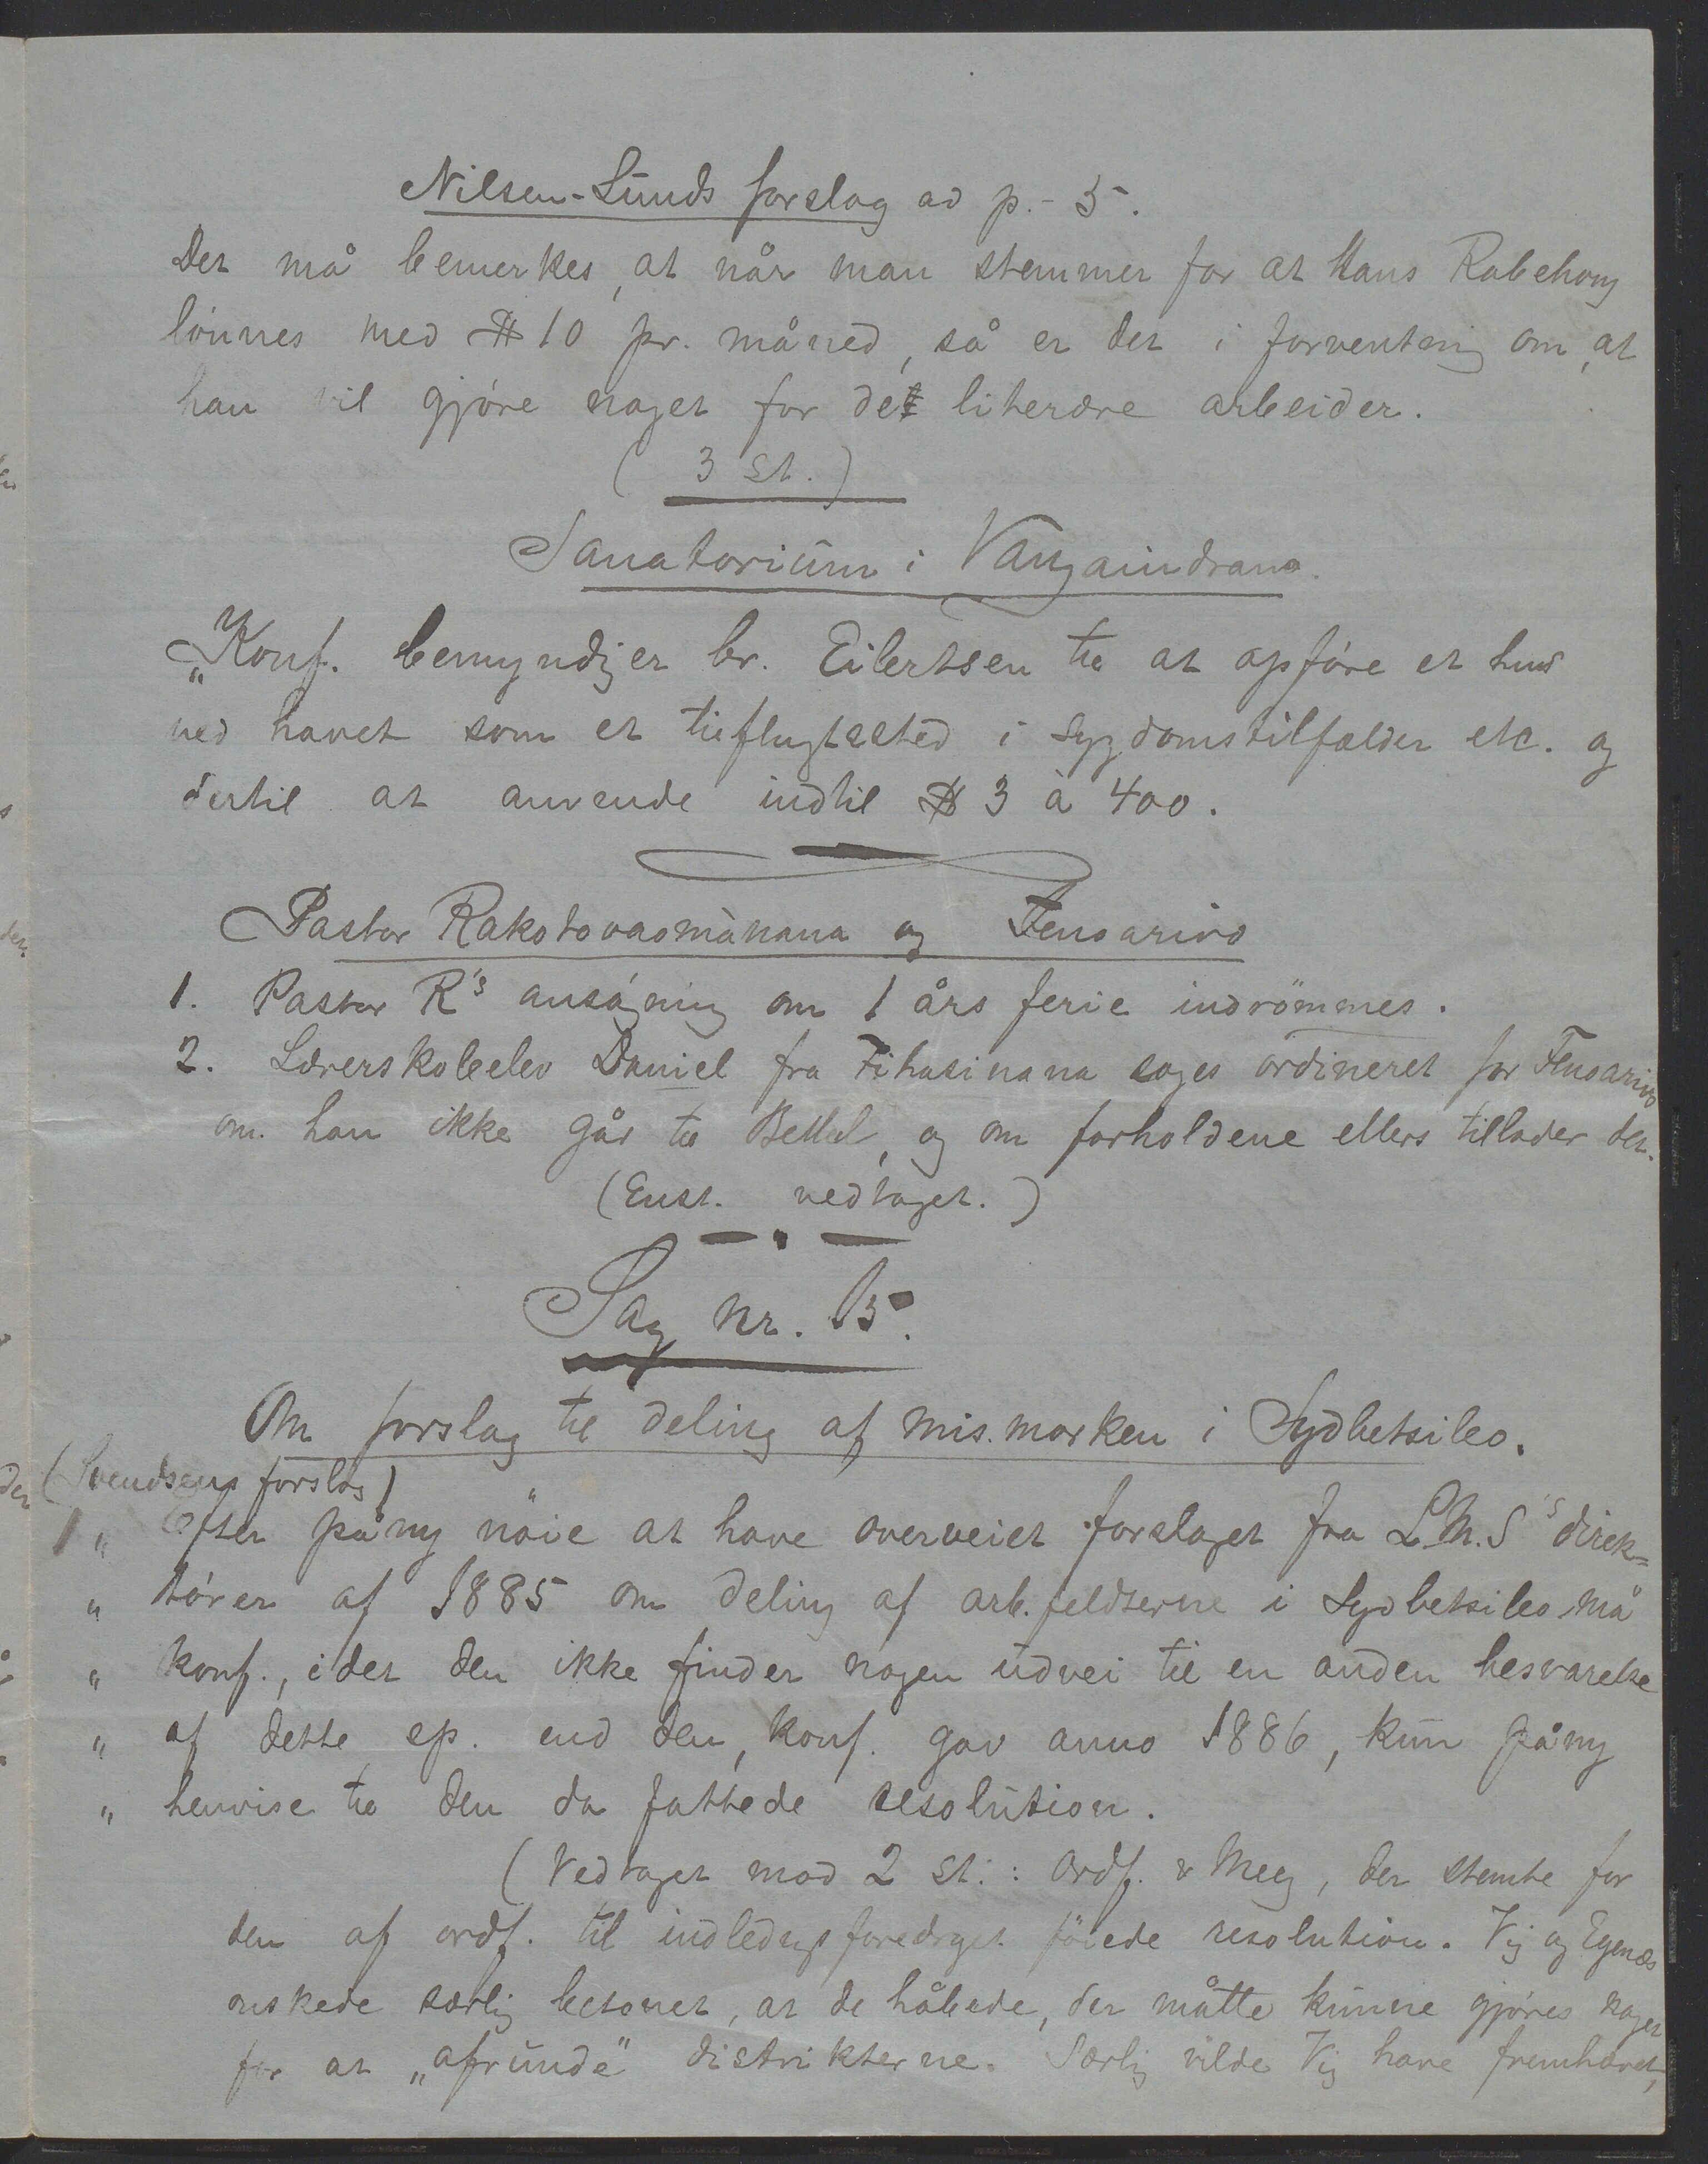 Nilsen-Lunds forslag ad p. 5.
Det må bemerkes, at når man stemmer for at Hans Rabehong
lönnes med $ 10 pr. måned, så er det i forventnig om, at
han vil gjöre noget for det literære arbeider.
(3 st.)
Sanatorium i Vangaindrano.
„Konf. bemyndiger br. Eilertsen til at opföre et hus
ved havet som et tilflugtssted i sygdomstilfælder etc. og
dertil at anvende indtil $ 3 à 400.
Pastor Rakotovaomànana og Fenoarivo
1. Pastor R's ansögning om 1 års ferie indrömmes.
2. Lærerskoleelev Daniel fra Fihasinana søges ordineret for Fenoarivo
om han ikke går til Bethel, og om forholdene ellers tillader det.
(Enst. vedtaget.)
Sag nr. 15.
Om forslag til deling af mis.marken i Sydbetsileo.
(Svendsens forslag)
1 „ Efter påny nöie at have overveiet forslaget fra L.M.S's direk=
„ törer af 1885 om deling af arb.feldterne i Sydbetsileo må
„ konf., idet den ikke finder nogen udvei til en anden besvarelse
„ af dette sp. end den, konf. gav anno 1886, kun påny
„ henvise til den da fattede resolution.
(Vedtaget mod 2 st.: Ordf. & Meeg, der stemte for
den af ordf. til indledngsforedraget föiede resolution. Vig og Egenæs
onskede særlig betonet, at de håbede, der måtte kunne gjöres noget
for at „afrunde" distrikterne. Særlig vilde Vig have fremhævet,